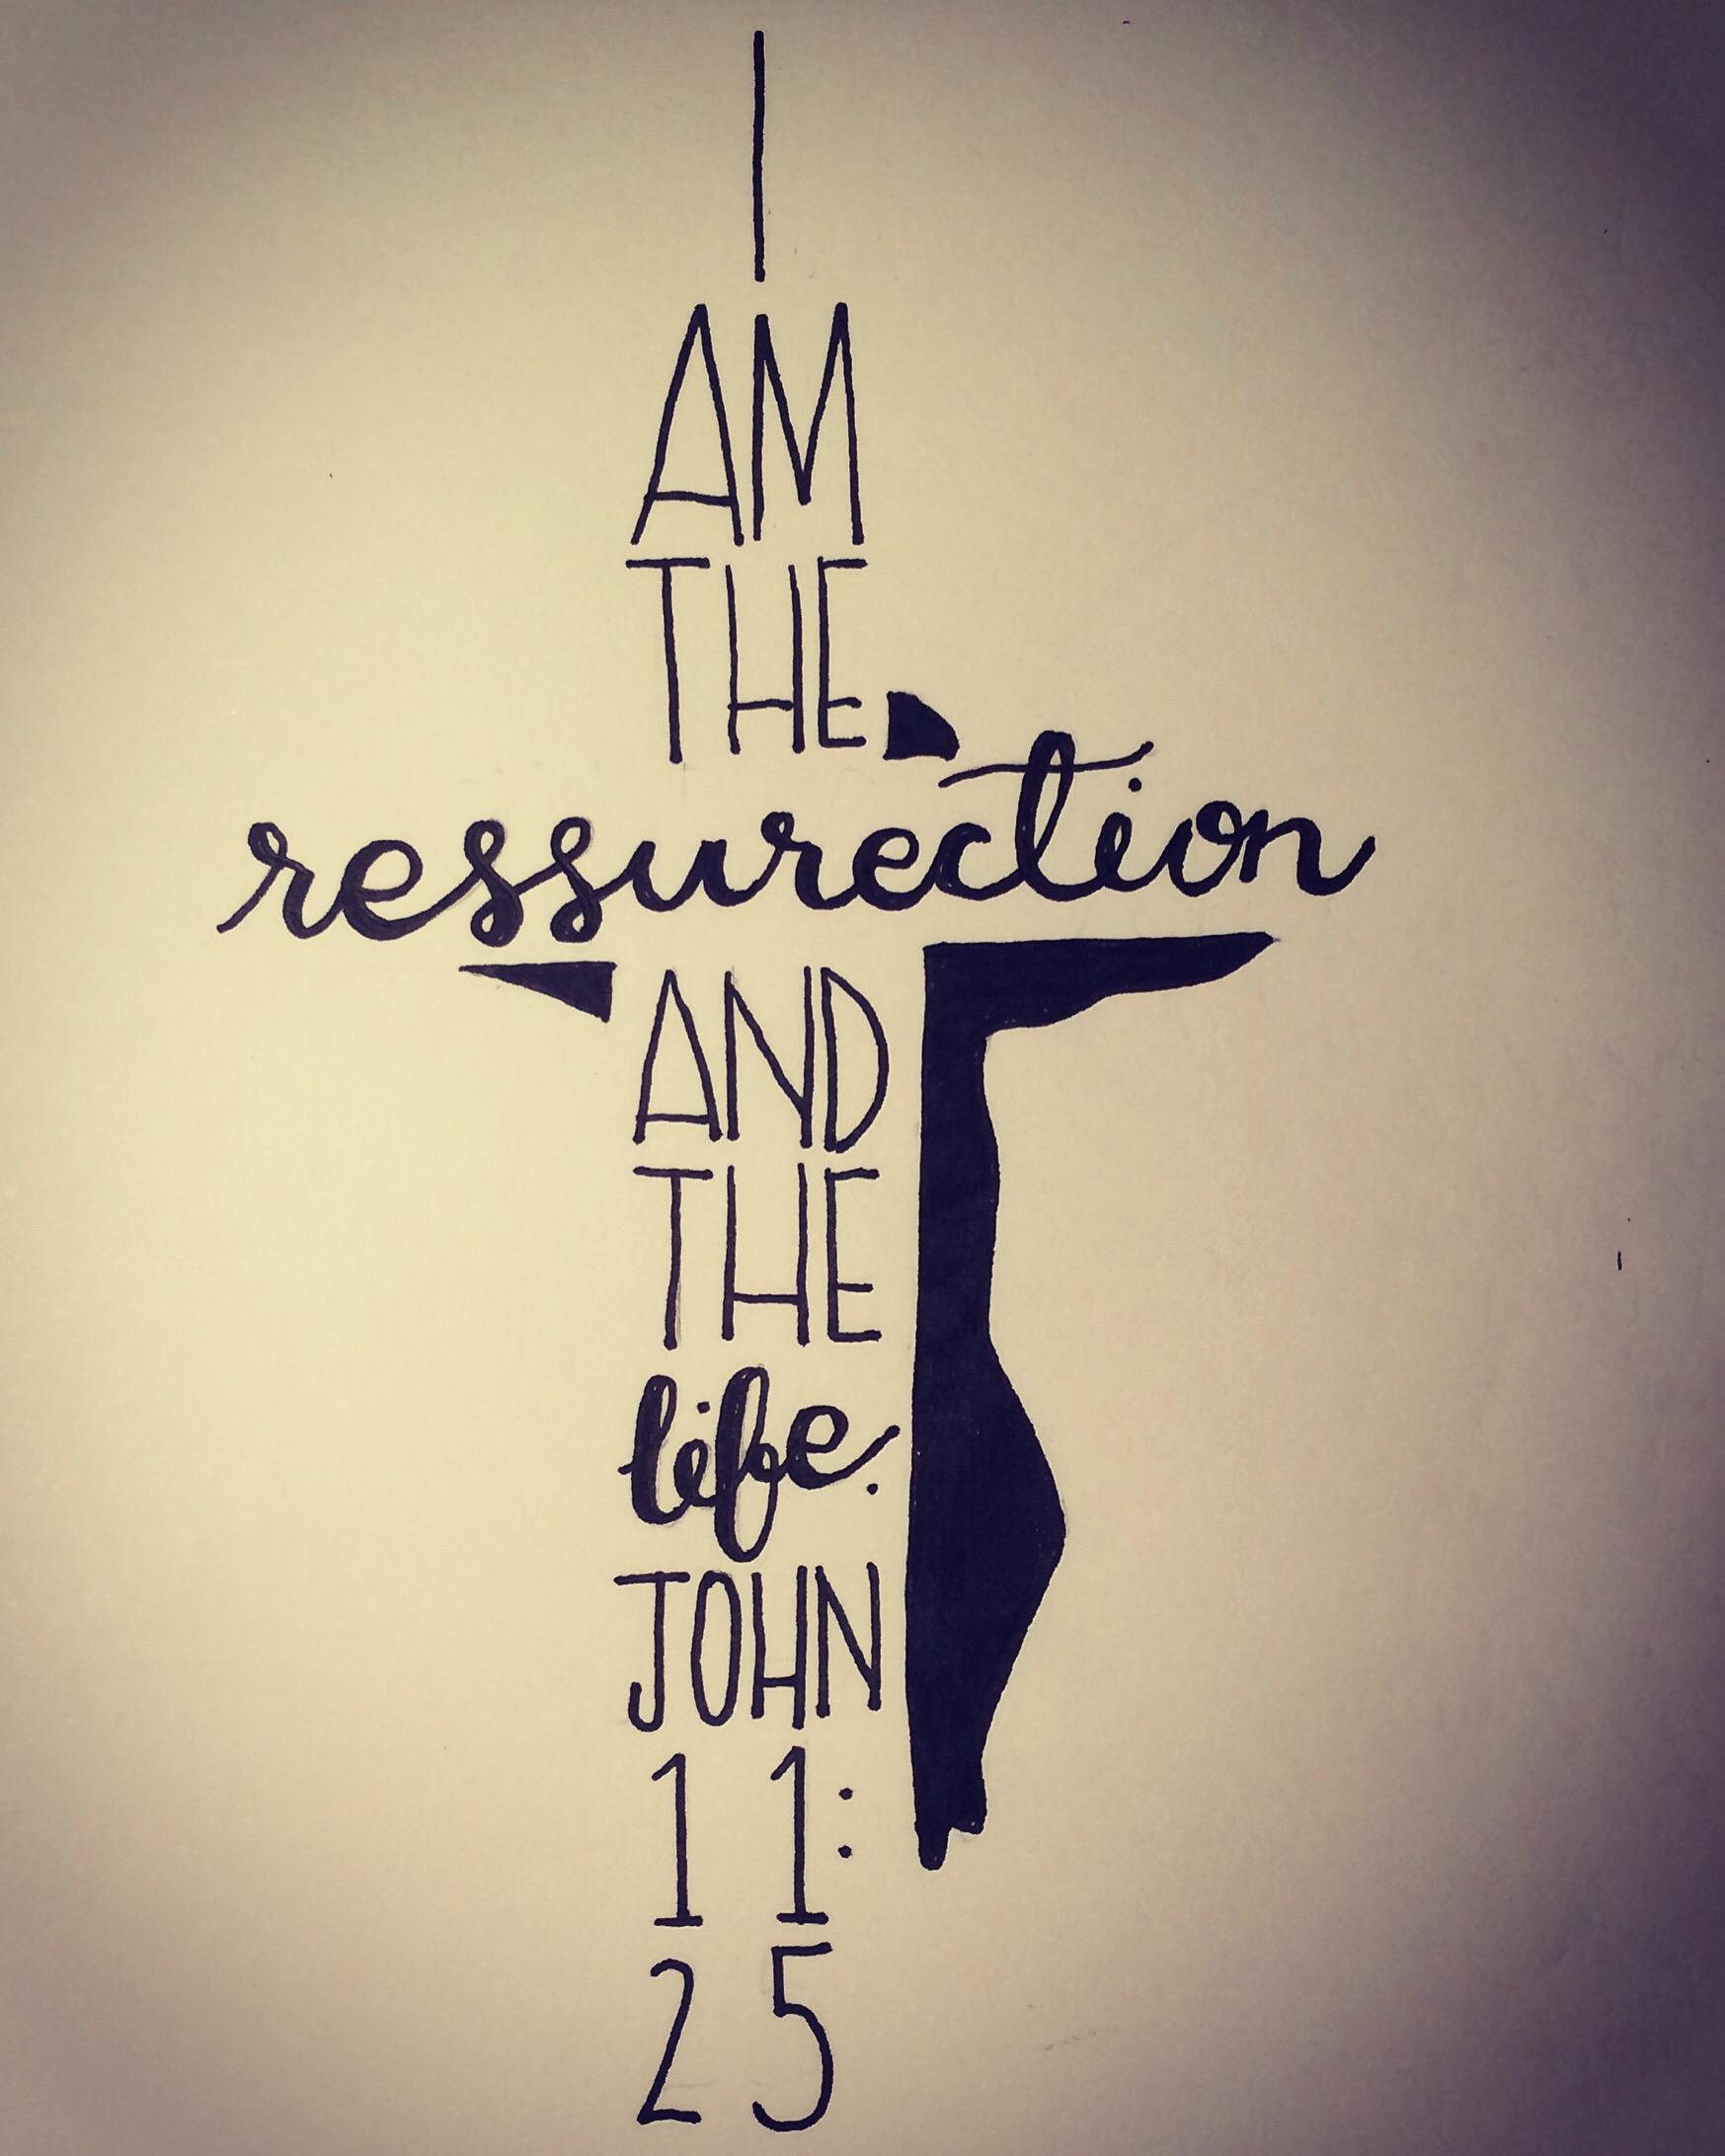 I
AM
THE
ressurection
AND
THE
life.
JOHN
11:
25